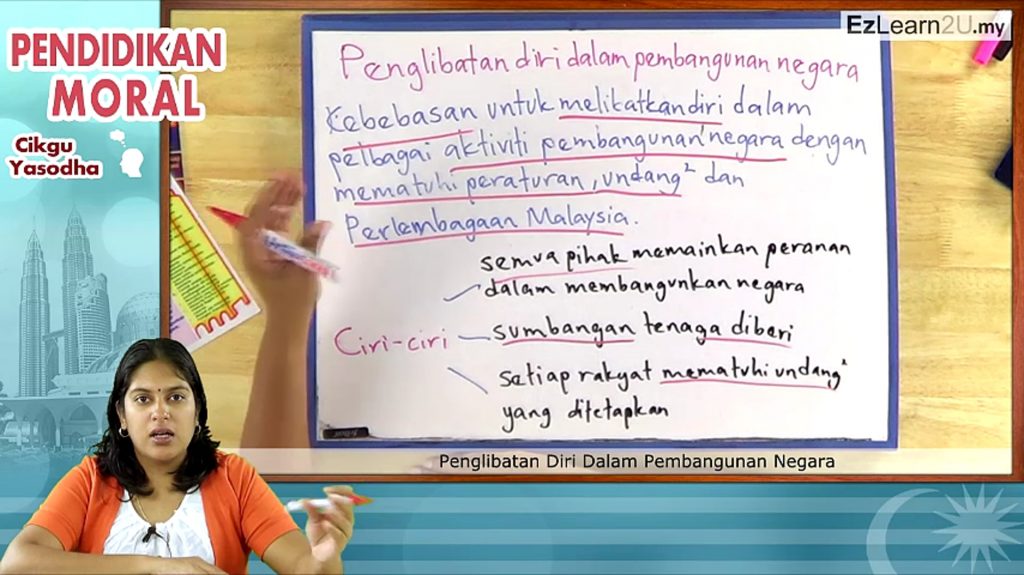 EzLearn2U.my
PENDIDIKAN
MORAL
Cikgu
Yasodha
Penglibatan diri dalam pembangunan negara
Kebebasan untuk melibatkan diri dalam
pelbagai aktiviti pembangunan negara dengan
mematuhi peraturan, undang² dan
Perlembagaan Malaysia.
Ciri-ciri
semua pihak memainkan peranan
dalam membangunkan negara
sumbangan tenaga diberi
setiap rakyat mematuhi undang²
yang ditetapkan
Penglibatan Diri Dalam Pembangunan Negara